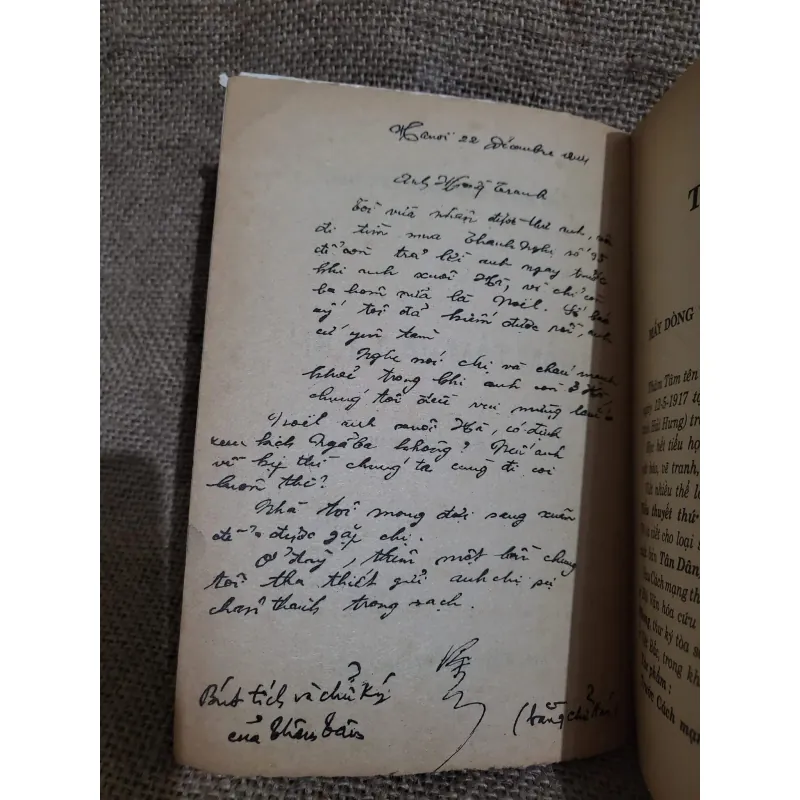 Hanoi 22 Décembre
Anh
Tôi vừa nhận được thư anh,
đi tìm mua Thanh Nghị số 95
để còn trả lời anh ngay trước
khi anh xuôi Hà, vì chỉ còn
ba hôm nữa là Noël. Số báo
ấy tôi đã kiếm được rồi, anh
cứ yên tâm
Nghe nói chị và cháu mạnh
khoẻ trong khi anh còn ở Hà,
chúng tôi đều vui mừng
Noël anh xuôi Hà, có định
xem kịch Ngã ba không? Nếu anh
về kịp thì chúng ta cùng đi coi
luôn thể?
Nhà tôi mong đợi sang xuân
để được gặp chị.
Ở đây, thêm một lần chúng
tôi tha thiết gửi anh chị sự
chân thành trong sạch.
Bút tích và chữ ký
của Thâm Tâm
(bằng chữ Hán)
T
MẤY DÒNG
Thâm Tâm tên
ngày 12-5-1917 tại
Hải Hưng) tr
học hết tiểu họ
vẽ tranh,
nhiều thể lo
Tiểu thuyết thứ
viết cho loại
Tân Dân,
Cách mạng th
Văn hóa cứu
thư ký tòa s
Bắc, trong kh
phẩm :
Trước Cách mạn